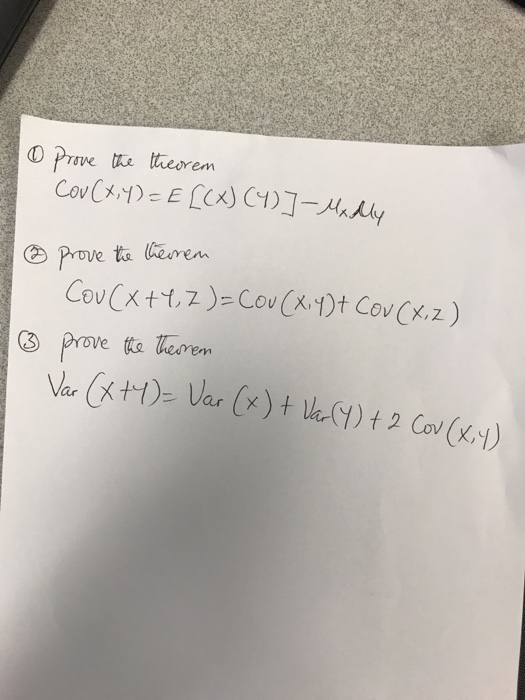 ① Prove the theorem
Cov(X,Y) = E[(X)(Y)] - MxMy
② prove the theorem
Cov(X+Y,Z) = Cov(X,Y) + Cov(X,Z)
③ prove the theorem
Var(X+Y) = Var(X) + Var(Y) + 2 Cov(X,Y)